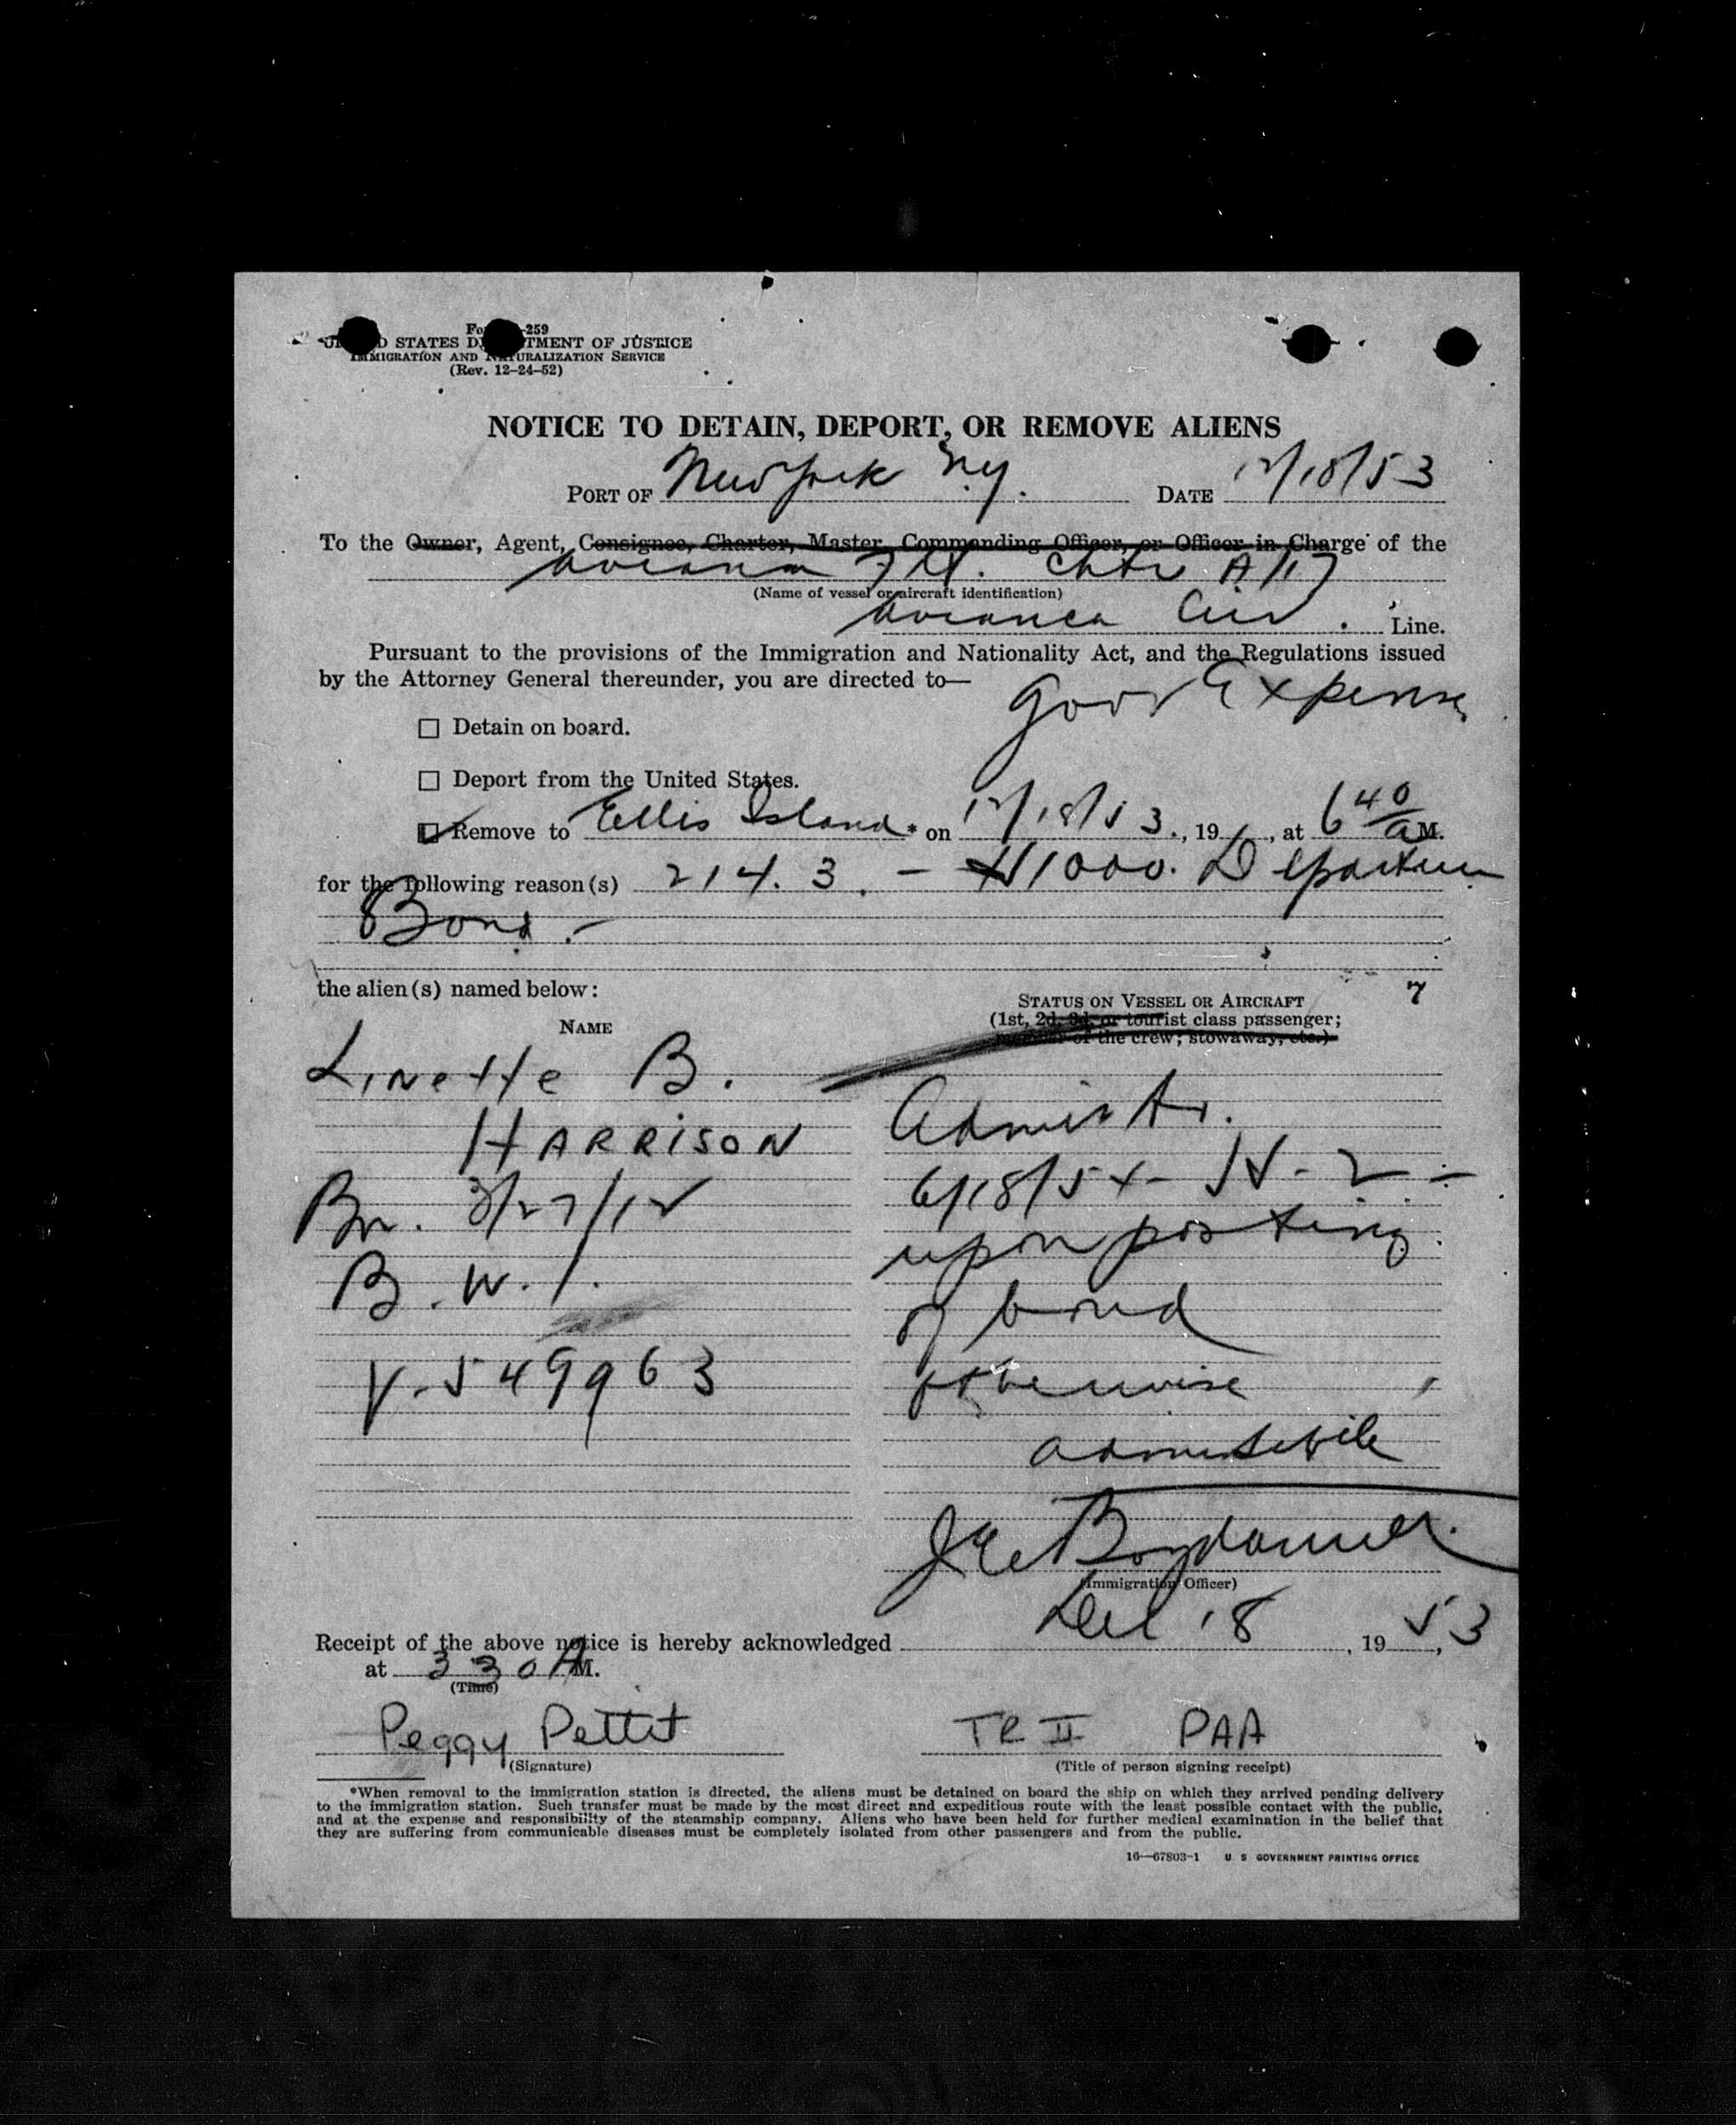 -259
STATES D TMENT OF JUSTICE
IMMIGRATION AND NATURALIZATION SERVICE
(Rev. 12-24-52)
NOTICE TO DETAIN, DEPORT, OR REMOVE ALIENS
PORT OF New York N.Y. DATE 12/18/53
To the Owner, Agent, Consignee, Charter, Master, Commanding Officer, or Officer in Charge of the
Avianca Flt.
(Name of vessel or aircraft identification)
Avianca Air Line.
Pursuant to the provisions of the Immigration and Nationality Act, and the Regulations issued
by the Attorney General thereunder, you are directed to—
Govt Expense
☐ Detain on board.
☐ Deport from the United States.
☑ Remove to Ellis Island * on 12/18/53., 19 , at 6 40 A M.
for the following reason(s) 214. 3. - $1000. Departure
Bond. -
the alien(s) named below:
7
NAME
STATUS ON VESSEL OR AIRCRAFT
(1st, 2d, 3d, or tourist class passenger;
member of the crew; stowaway, etc.)
Linette B.
HARRISON
Bn. 3/27/12
B.W.I.
V-549963
Admit to.
6/18/54 - H-2 -
upon posting
of bond
otherwise
admissible
(Immigration Officer)
Receipt of the above notice is hereby acknowledged Dec 18, 19 53,
at 3 30 A M.
(Time)
Peggy Pettit TR II PAA
(Signature) (Title of person signing receipt)
*When removal to the immigration station is directed, the aliens must be detained on board the ship on which they arrived pending delivery
to the immigration station. Such transfer must be made by the most direct and expeditious route with the least possible contact with the public,
and at the expense and responsibility of the steamship company. Aliens who have been held for further medical examination in the belief that
they are suffering from communicable diseases must be completely isolated from other passengers and from the public.
16—67803-1 U S GOVERNMENT PRINTING OFFICE